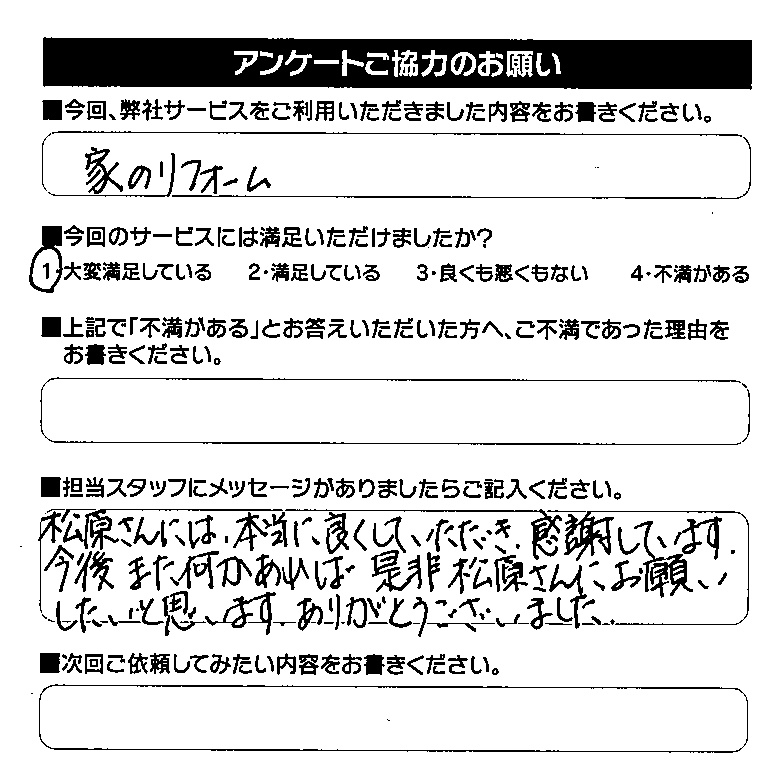 アンケートご協力のお願い
■今回、弊社サービスをご利用いただきました内容をお書きください。
家のリフォーム
■今回のサービスには満足いただけましたか?
1・大変満足している 2・満足している 3・良くも悪くもない 4・不満がある
■上記で「不満がある」とお答えいただいた方へ、ご不満であった理由を
お書きください。
■担当スタッフにメッセージがありましたらご記入ください。
松原さんには、本当に良くしていただき、感謝しています。
今後また何かあれば是非松原さんにお願い
したいと思います。ありがとうございました。
■次回ご依頼してみたい内容をお書きください。